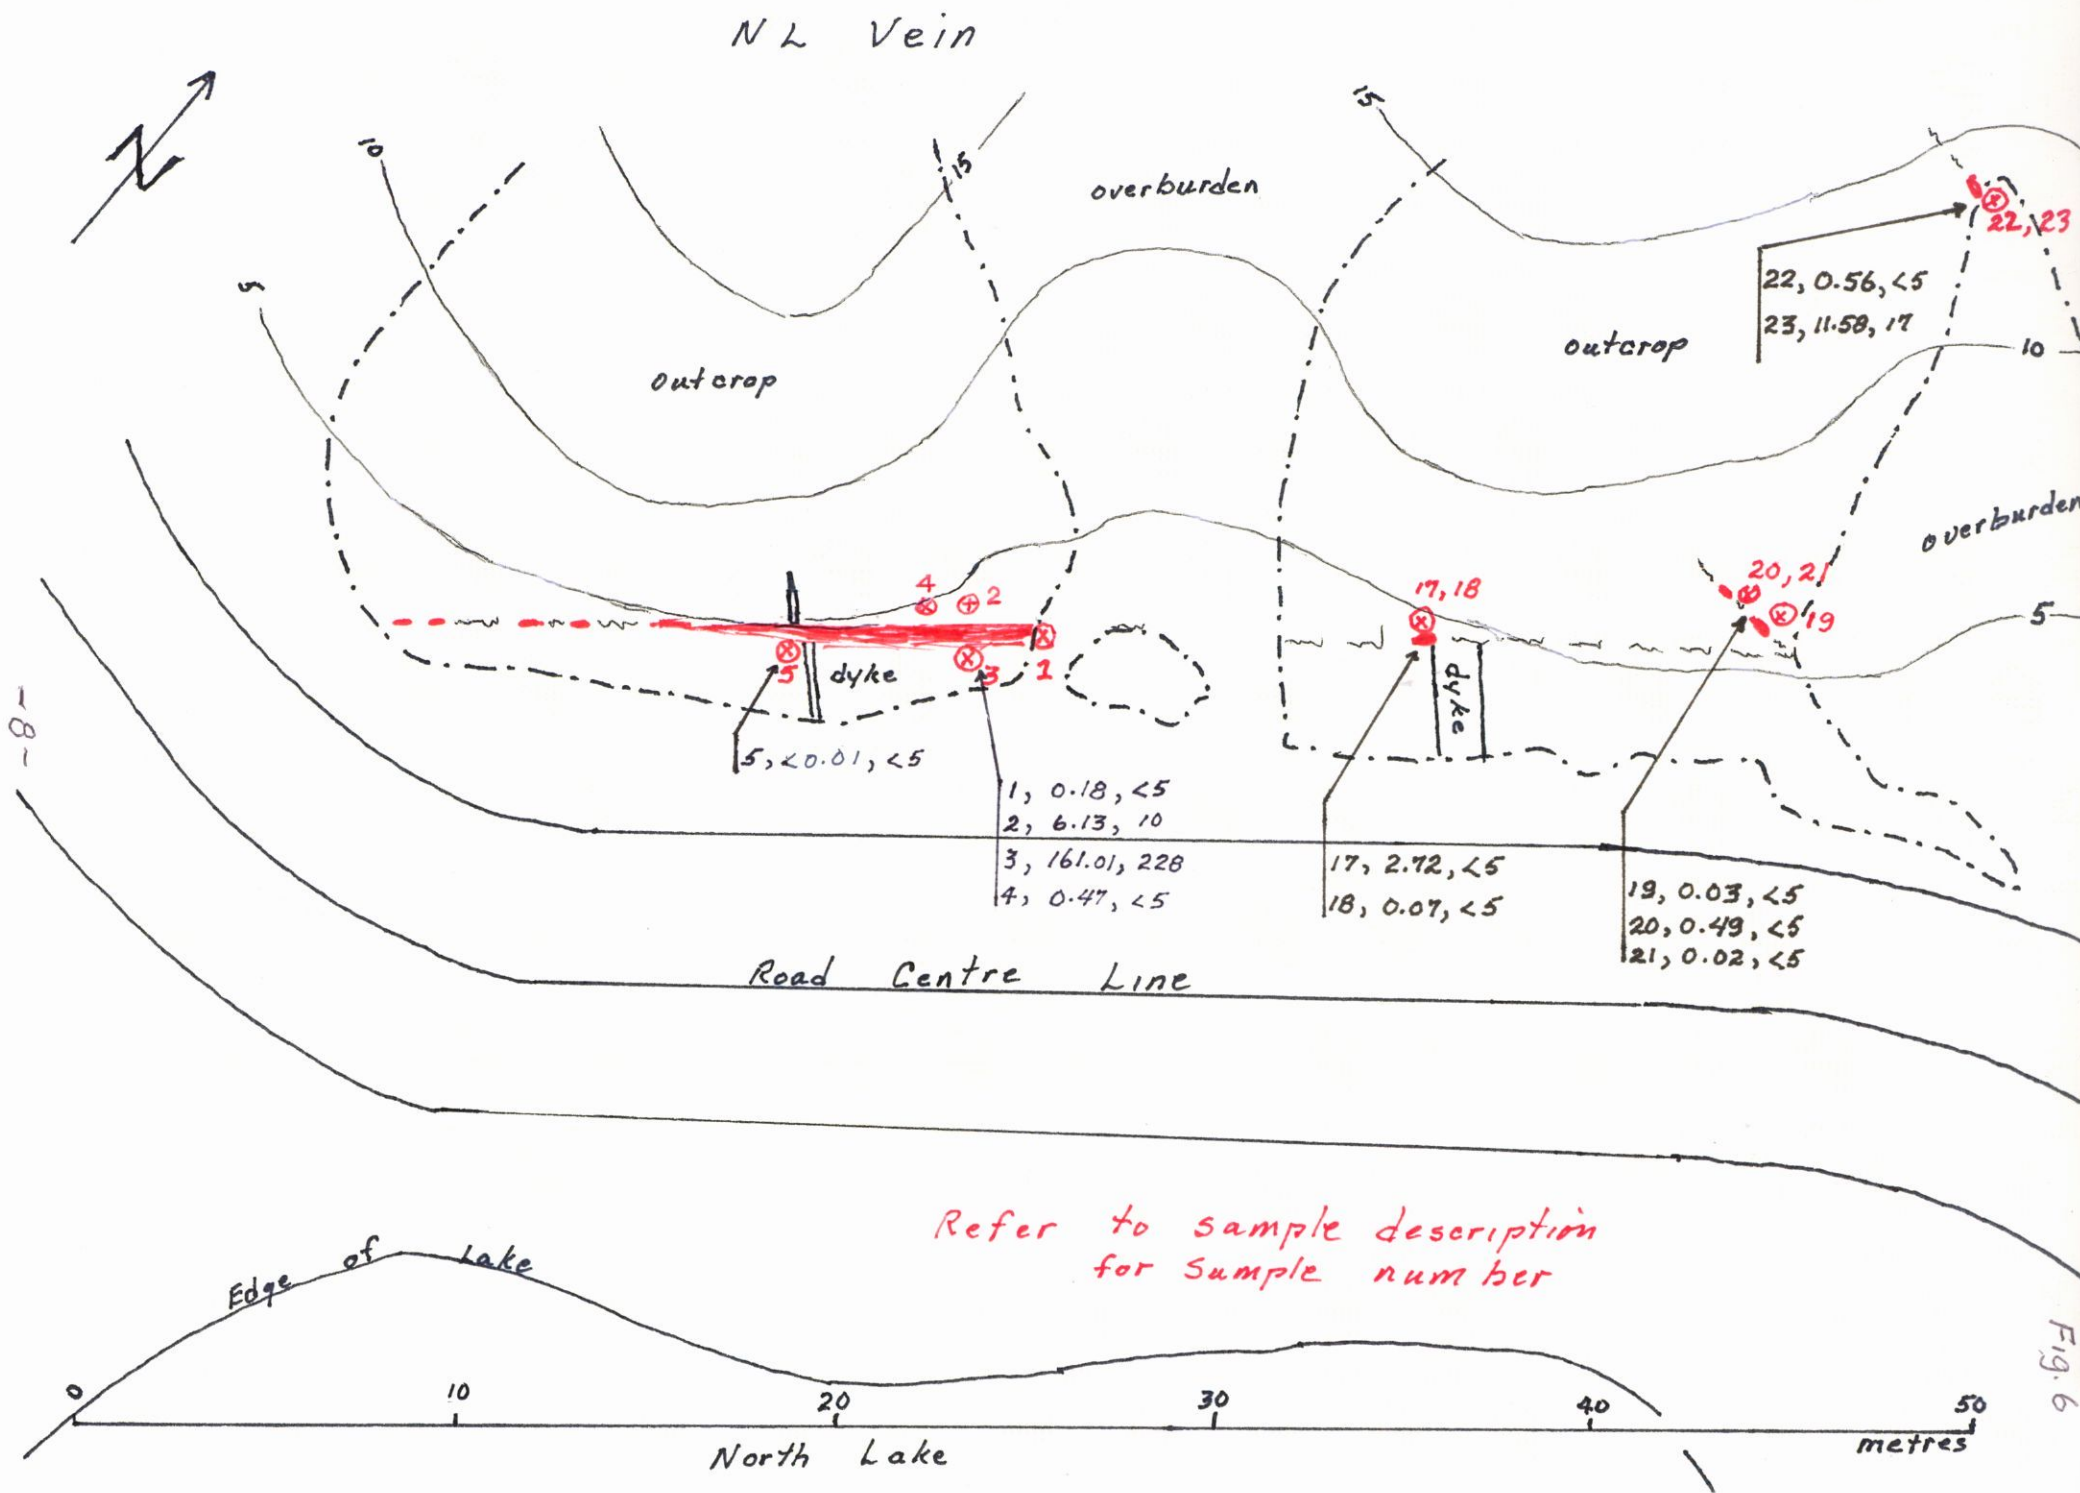 NL Vein
N
10
15
15
overburden
22, 23
22, 0.56, <5
23, 11.58, 17
5
outcrop
outcrop
10
overburden
4
2
17, 18
20, 21
19
5
5
dyke
3
1
dyke
5, <0.01, <5
1, 0.18, <5
2, 6.13, 10
3, 161.01, 228
4, 0.47, <5
17, 2.72, <5
18, 0.07, <5
19, 0.03, <5
20, 0.49, <5
21, 0.02, <5
-8-
Road Centre Line
Refer to sample description
for Sumple number
Edge of Lake
Fig. 6
0 10 20 30 40 50
North Lake
metres